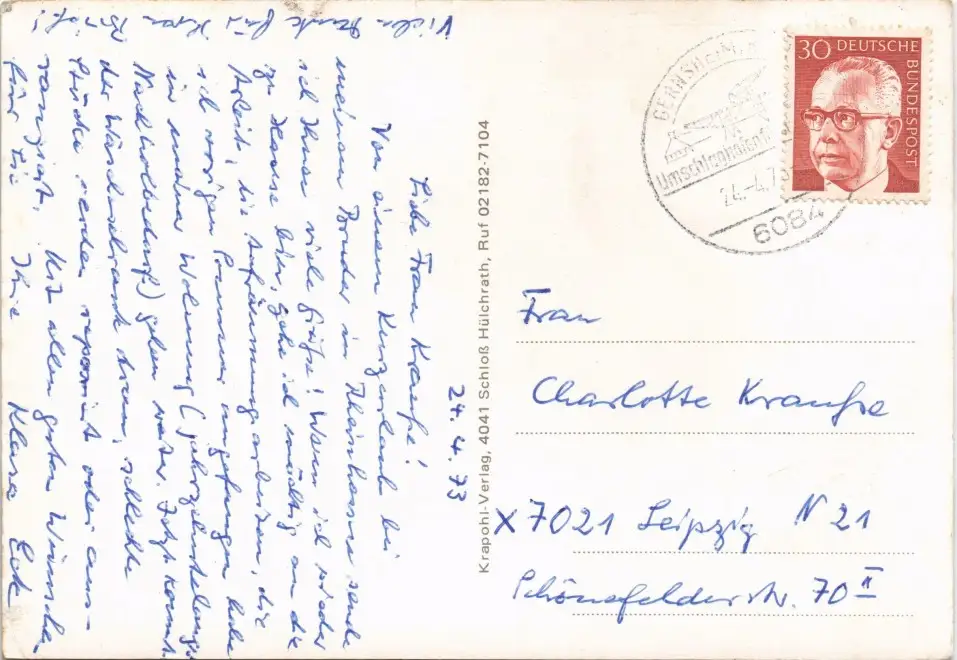 24.4.73
Liebe Frau Krauße!
Von einem Kurzurlaub bei
meinem Bruder in Rheinhausen sende
ich Ihnen viele Grüße! Wenn ich wieder
zu Hause bin, gehe ich mächtig an die
Arbeit, die Aufräumungsarbeiten, die
ich vorigen Sommer angefangen habe
in meiner Wohnung (jahrzehntelanger
Nachholbedarf) gehen weiter. Jetzt kommt
der Wäscheschrank dran, schlechte
Stücke werden repariert oder aus-
rangiert. Mit allen guten Wünschen
für Sie Ihre Klara Eck
Vielen Dank für
Ihren Brief!
Krapohl-Verlag, 4041 Schloß Hülchrath, Ruf 02182-7104
GERNSHEIM
Umschlaghafen
24.-4.73
6084
30 DEUTSCHE
BUNDESPOST
Frau
Charlotte Krauße
X7021 Leipzig N 21
Schönefelderstr. 70 II